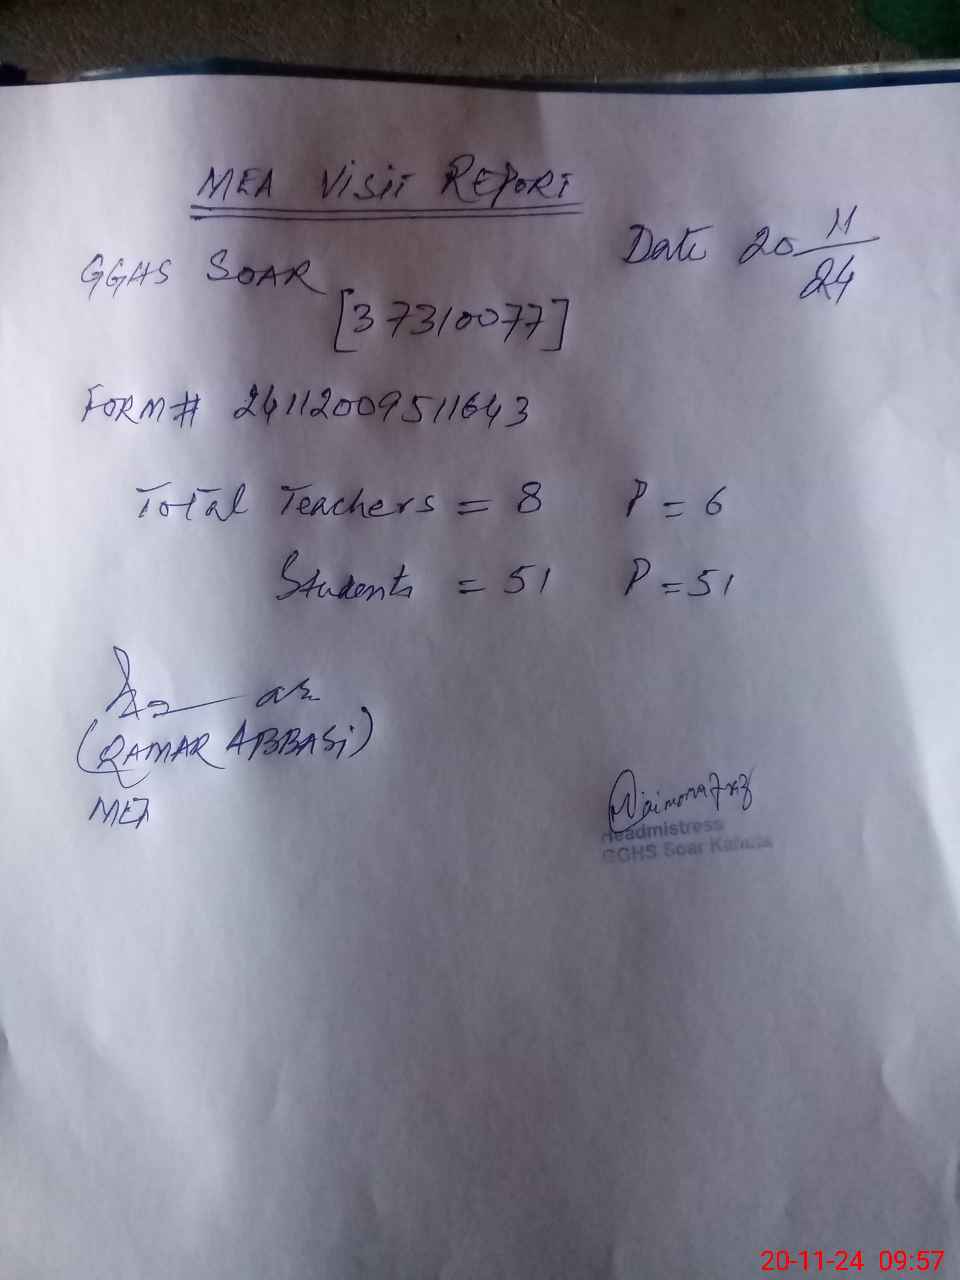 MEA Visit Report
GGHS SOAR
Date 20 11/24
[37310077]
FORM# 24112009511643
Total Teachers = 8 P = 6
Students = 51 P = 51
(QAMAR ABBASi)
MEA
Headmistress
GGHS Soar Kahuta
20-11-24 09:57